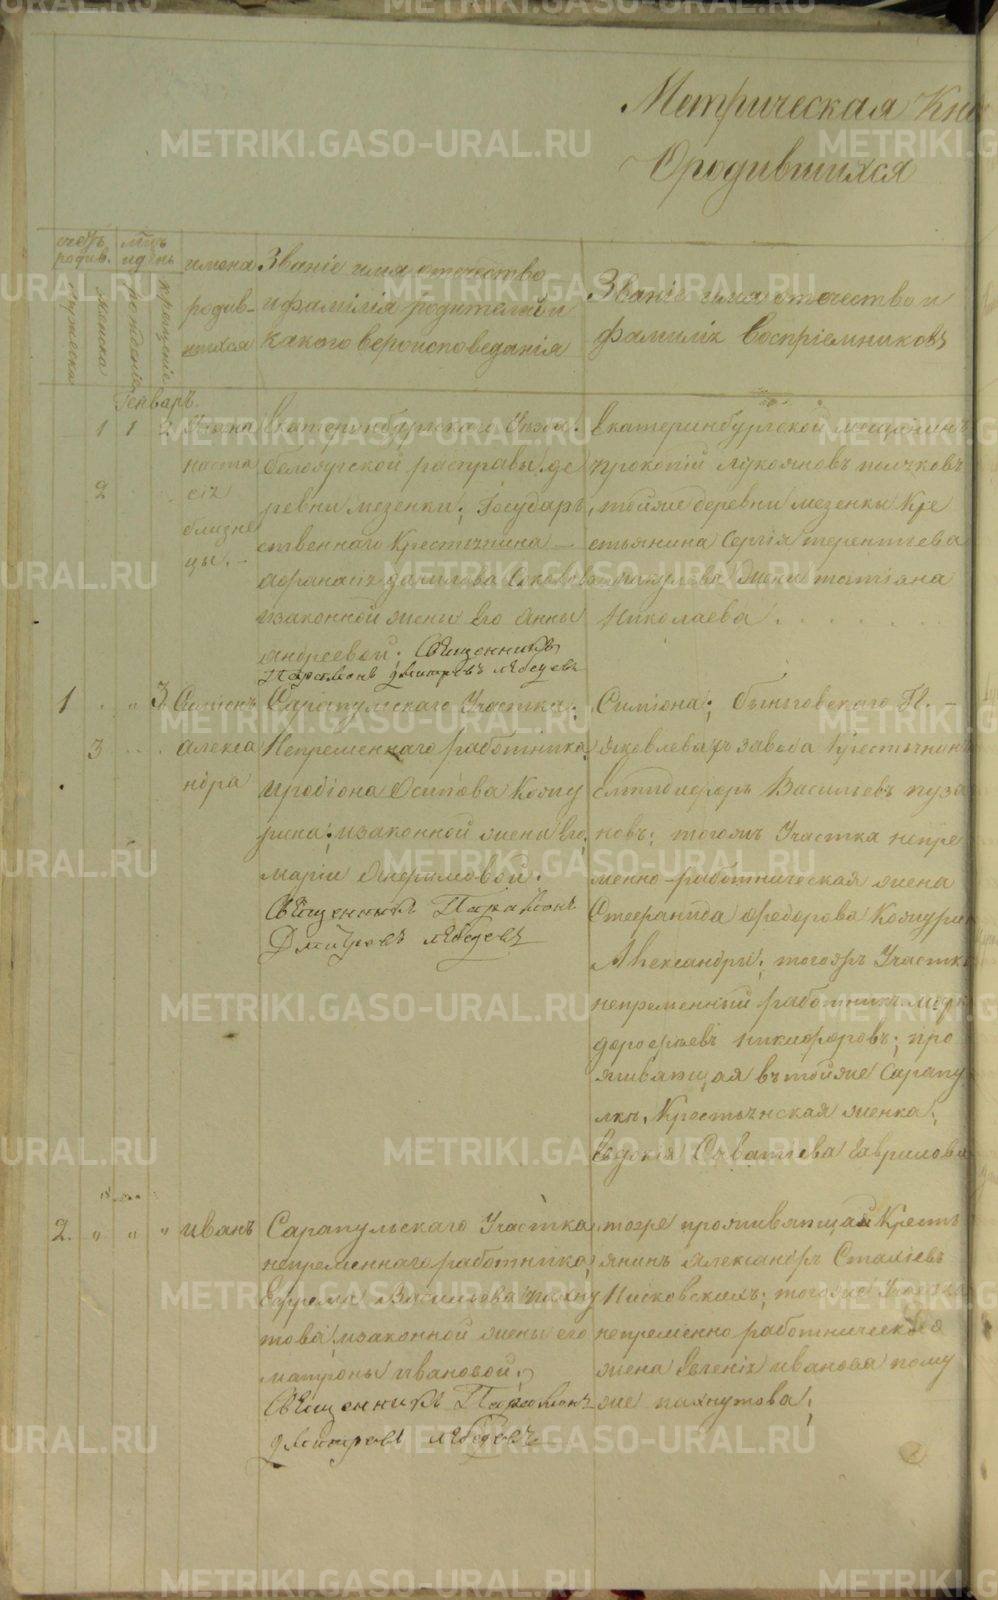 Метрическая Кни
О родившихся
счетъ родив.
мужеска
женска
мцъ и день
рожденіе
крещеніе
имена родив-шихся
Званіе имя отечество
и фамилія родителей и
какого вероисповеданія
Званіе имя отечество и
фамилія Воспріемниковъ
Генварь.
1 1 2
2
наста
сіи
близне
цы.
Екатеринбургскаго Уезда.
белоярской расправы де
ревни мезенки; Государ
ственнаго Крестьянина
афанасія данилова
и законной жены его Анны
андреевой. Священникъ
Парамонъ дмитревъ лебедевъ
Екатеринбургской мещанинъ
прокопій лукояновъ
тойже деревни мезенки Кре
стьянина Сергія терентьева
жена татіана
Николаева.
1 " 3
3
алекса
ндра
Сарапульскаго Участка.
Непременнаго работника
иродіона Осипова Кожу
рина; и законной жены его
маріи
Священникъ Парамонъ
Дмитревъ лебедевъ
Симіона; быньговскаго П. –
яковлева завода Крестьянинъ
Васильевъ пуза
новъ; тогожъ Участка непре
менно-работническая жена
Стефанида федорова Кожури
Александры; тогожъ Участка
непременный работникъ
дорофеевъ никифоровъ; про
живающая въ тойже Сарапу
лке, Крестьянская женка,
Евдокія Гаврилова
2. " " "
иванъ
Сарапульскаго Участка
непременнаго работника
Ефрема Васильева пахну
това; и законной жены его
матроны ивановой.
Священникъ Парамонъ
дмитревъ лебедевъ
тогоже проживающай Кресть
янинъ Александръ
тогоже Участка
непременно работническаго
жена Евгенія иванова
же пахнутова;
METRIKI.GASO-URAL.RU